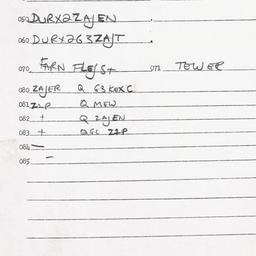 050 DURX2ZAJEN
060 DURX2G3ZAJT
070 FARN FLEJST 072 TEWER
080 ZAJER Q G3KEXC
081 ZLP Q MEW
082 + Q ZAJEN
083 + QGC ZLP
084 —
085 —